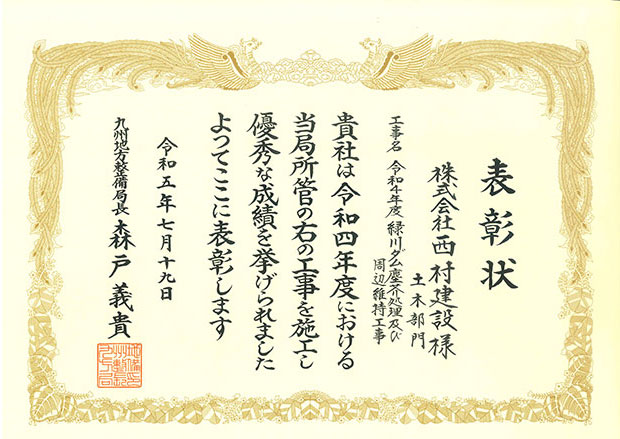 表彰状
株式会社西村建設様
土木部門
工事名 令和4年度 緑川ダム塵芥処理及び
周辺維持工事
貴社は令和四年度における
当局所管の右の工事を施工し
優秀な成績を挙げられました
よってここに表彰します
令和五年七月十九日
九州地方整備局長 森戸義貴